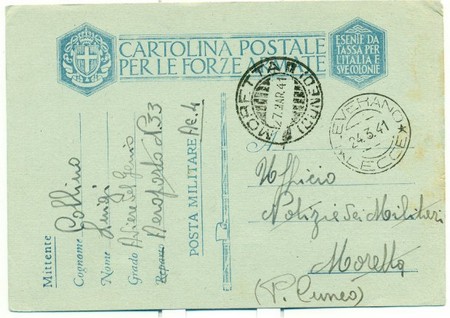 CARTOLINA POSTALE
PER LE FORZE ARMATE
ESENTE DA
TASSA PER
L'ITALIA
E SVE COLONIE
MORETTA (CUNEO)
27.MAR.41
LEVERANO
24.3.41
LECCE
A
Ufficio
Notizie dei Militari
Moretta
(P. Cuneo)
Mittente
Cognome Collino
Nome Luigi
Grado Aviere del Genio
Reparto Aeroporto N. 33
POSTA MILITARE Ae. 4